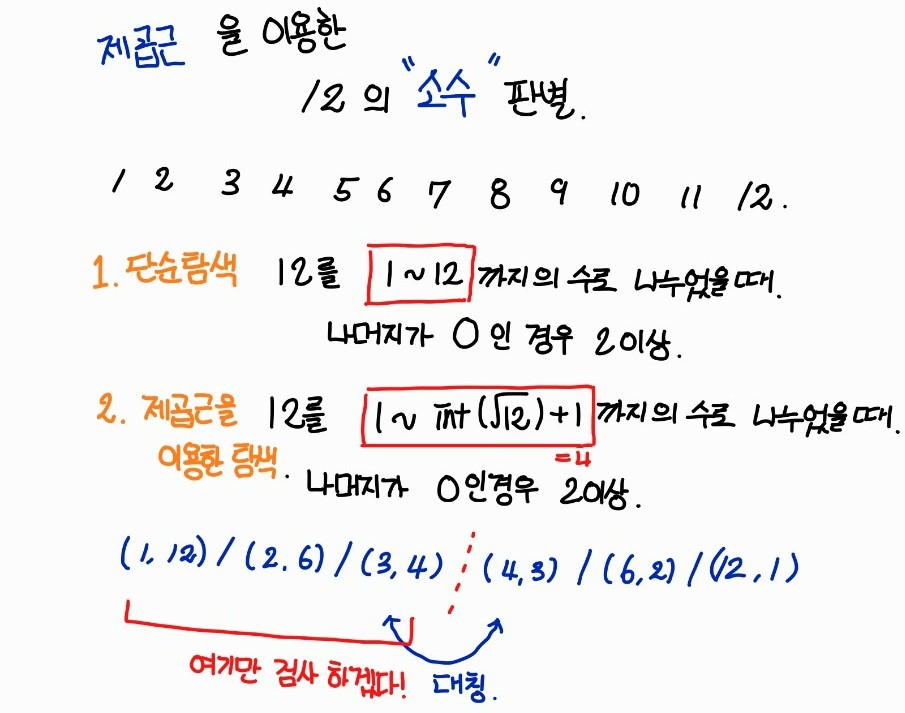 제곱근 을 이용한
12의 "소수" 판별.
1 2 3 4 5 6 7 8 9 10 11 12.
1. 단순탐색 12를 1~12 까지의 수로 나누었을때.
나머지가 0인 경우 2이상.
2. 제곱근을 12를 1~ int(√12)+1 까지의 수로 나누었을때.
=4
이용한 탐색. 나머지가 0인경우 2이상.
(1,12) / (2.6) / (3,4) (4,3) / (6,2) / (12,1)
여기만 검사 하겠다! 대칭.